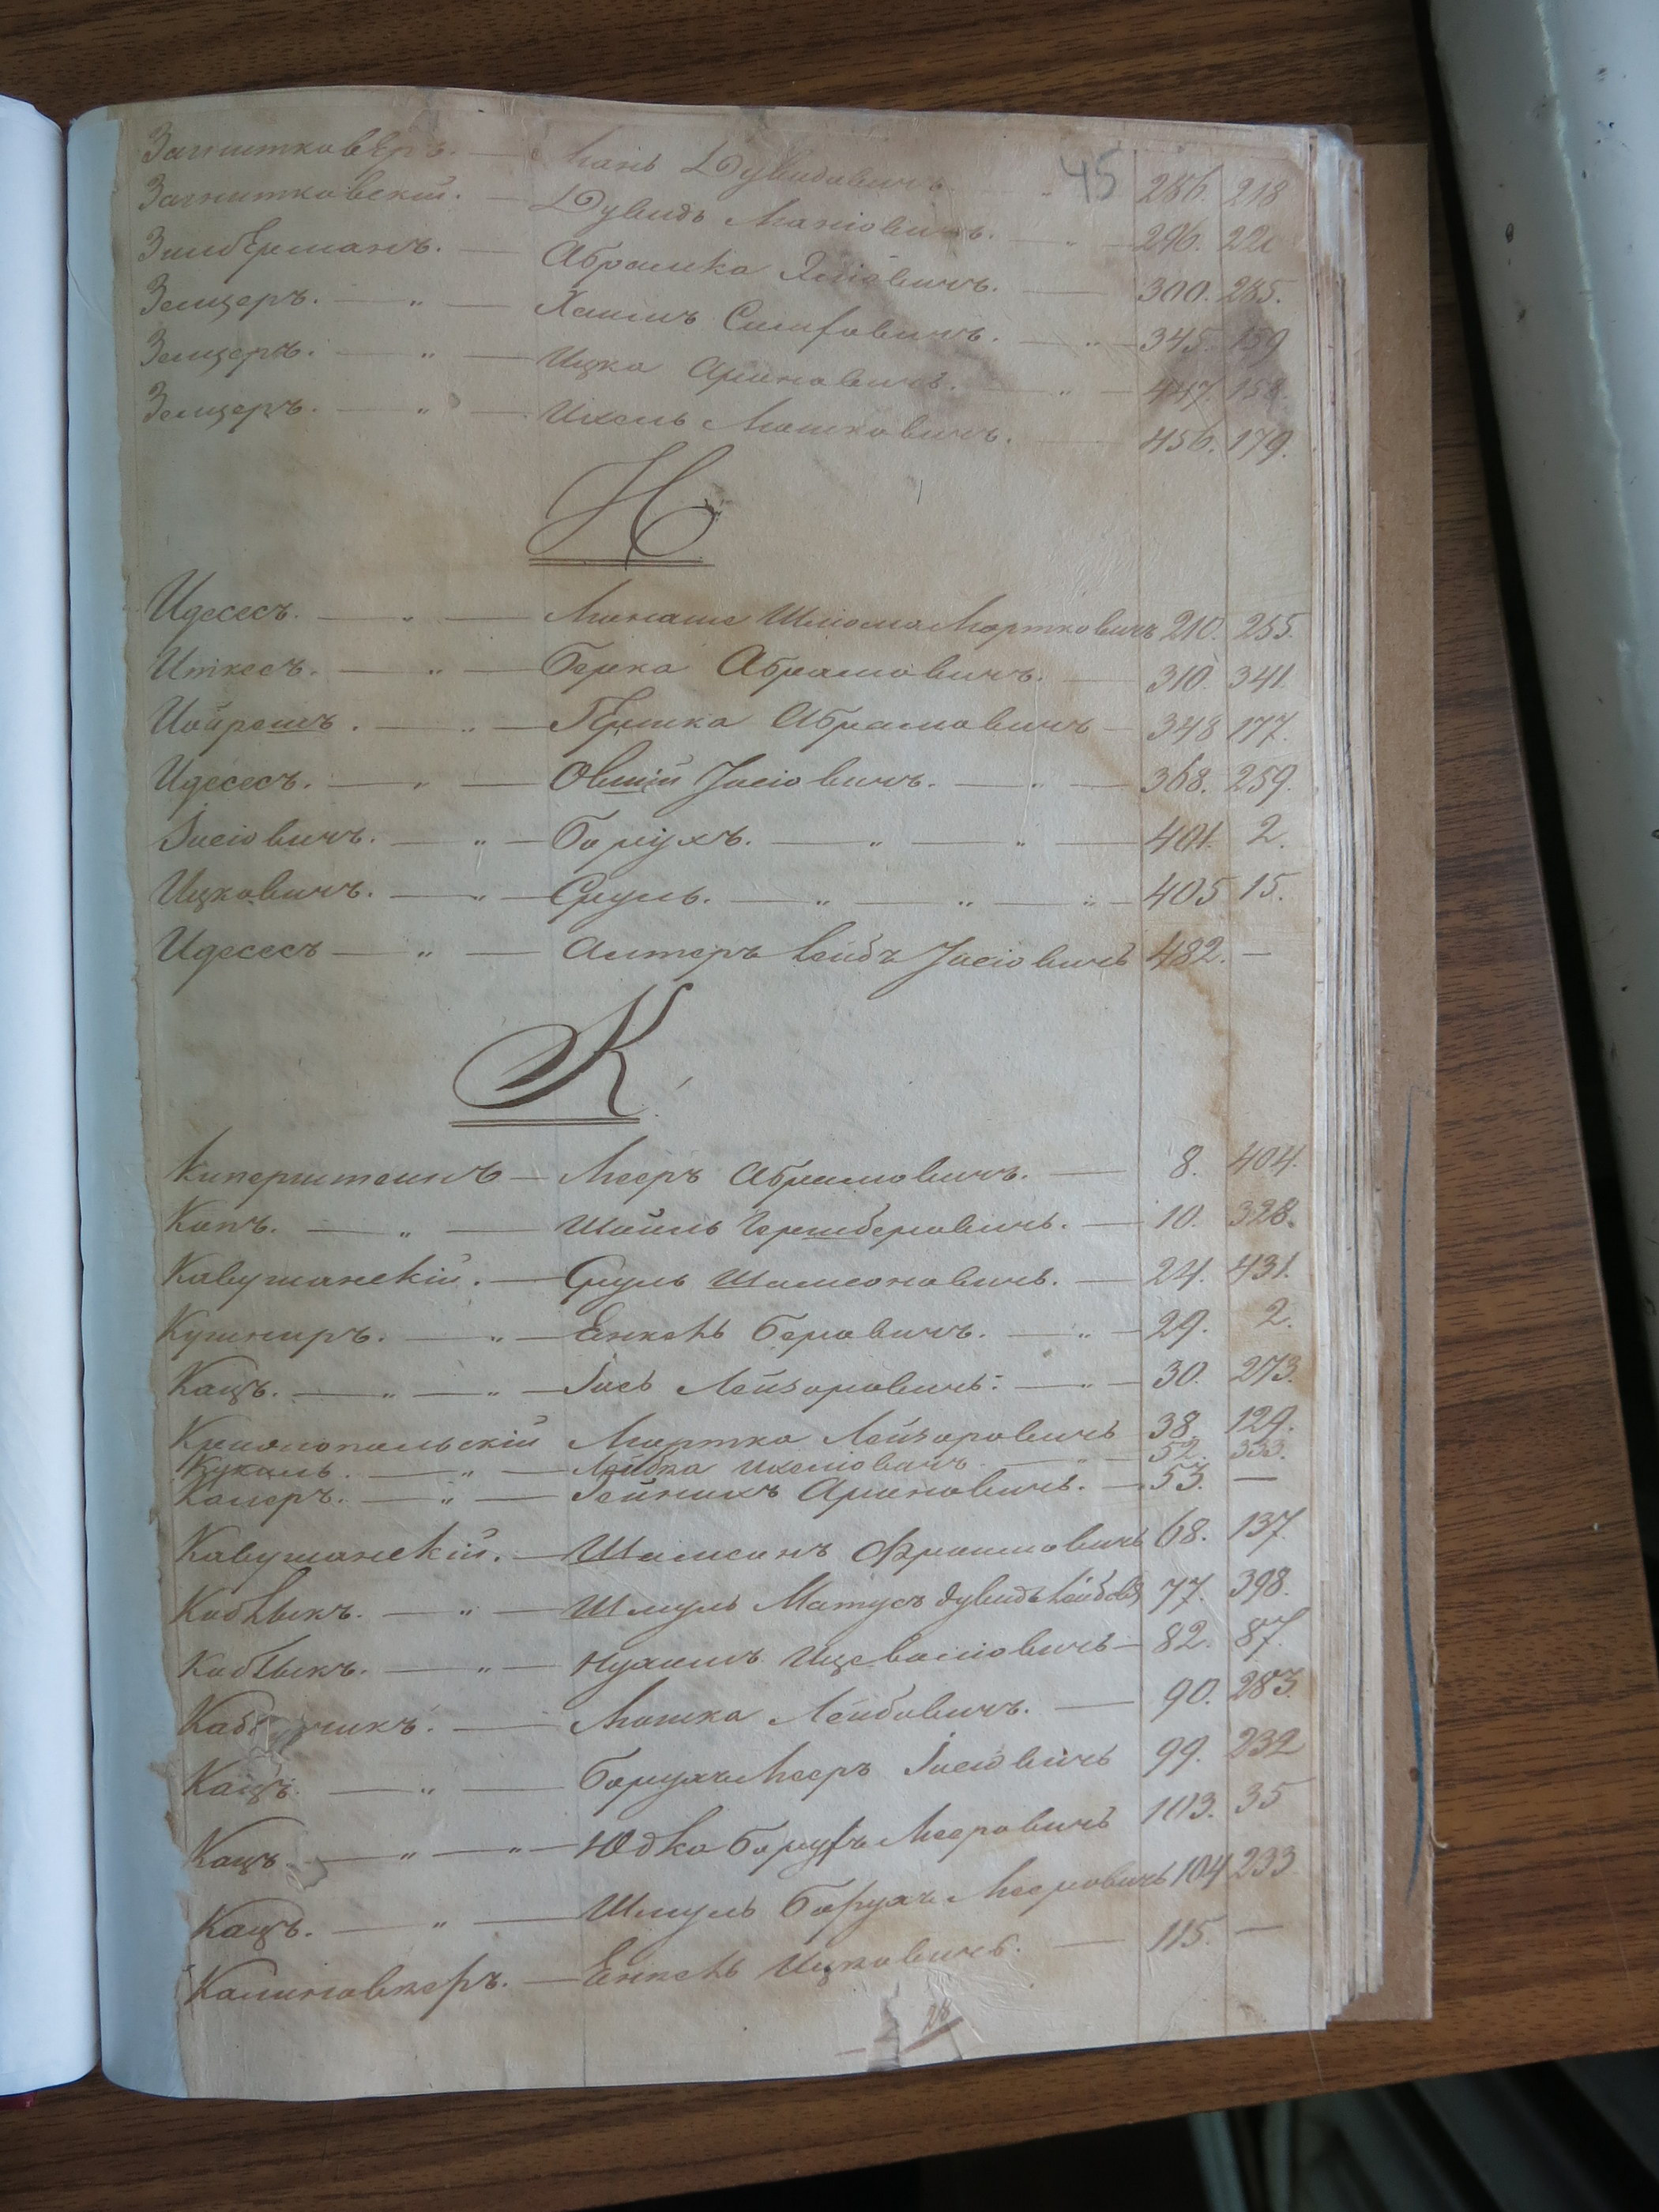 45
Загнитковеръ. — Мань Дувидовичъ 286. 218
Загнитковскій. — Дувидъ Маніовичъ. — " — 296. 220
Зильберманъ. — Абрамка — 300. 285.
Зельцеръ. — " — Хаимъ — " — 345. 159
Зельцеръ. — " — Ицко Ароновичъ. — " — 447. 158.
Зельцеръ. — " — Ихель Мошковичъ. — 456. 179.
И
Идесесъ. — " — Манаше Шліома Мортковичъ 210. 255.
Иткесъ. — " — Берка Абрамовичъ. — 310. 341.
— " — Гершка Абрамовичъ — 348 177.
Идесесъ. — " — Овшій Іосіовичъ. — " — 368. 259.
Іосіовичъ. — " — Борухъ. — " — " — 401. 2.
Ицковичъ. — " — Сруль. — " — " — " — 405 15.
Идесесъ — " — Алтеръ Лейбъ Іосіовичъ 482. —
К
Куперштеинъ — Мееръ Абрамовичъ. — 8. 404.
Копъ. — " — Шоилъ Гершберовичъ. — 10. 328.
Кавушанскій. — Сруль Шамсоновичъ. — 24. 431.
Кушниръ. — " — Енкель Беровичъ. — " — 29. 2.
Кацъ. — " — " — Іось Лейзоровичъ. — " — 30. 273.
Краснопольскій Мортко Лейзоровичъ 38. 129.
Кукель. — " — Лейбка Ихеліовичъ — " — 52. 333.
Колеръ. — " — Гейнихъ Ароновичъ. — 53. —
Кавушанскій. — Шамсонъ Фроимовичъ 68. 137.
Кобыкъ. — " — Шмуль Матусъ Дувидъ Лейбов. 77. 398.
Кобыкъ. — " — Нухимъ — 82. 87.
— Мошка Лейбовичъ. — 90. 283.
Кацъ. — " — Борухъ Мееръ Іосіовичъ 99. 232
Кацъ. — " — " — Юдко Борухъ Мееровичъ 103. 35
Кацъ. — " — Шмуль Борухъ Мееровичъ 104 233
Калиновкеръ. — Енкель Ицковичъ. — 115. —
28